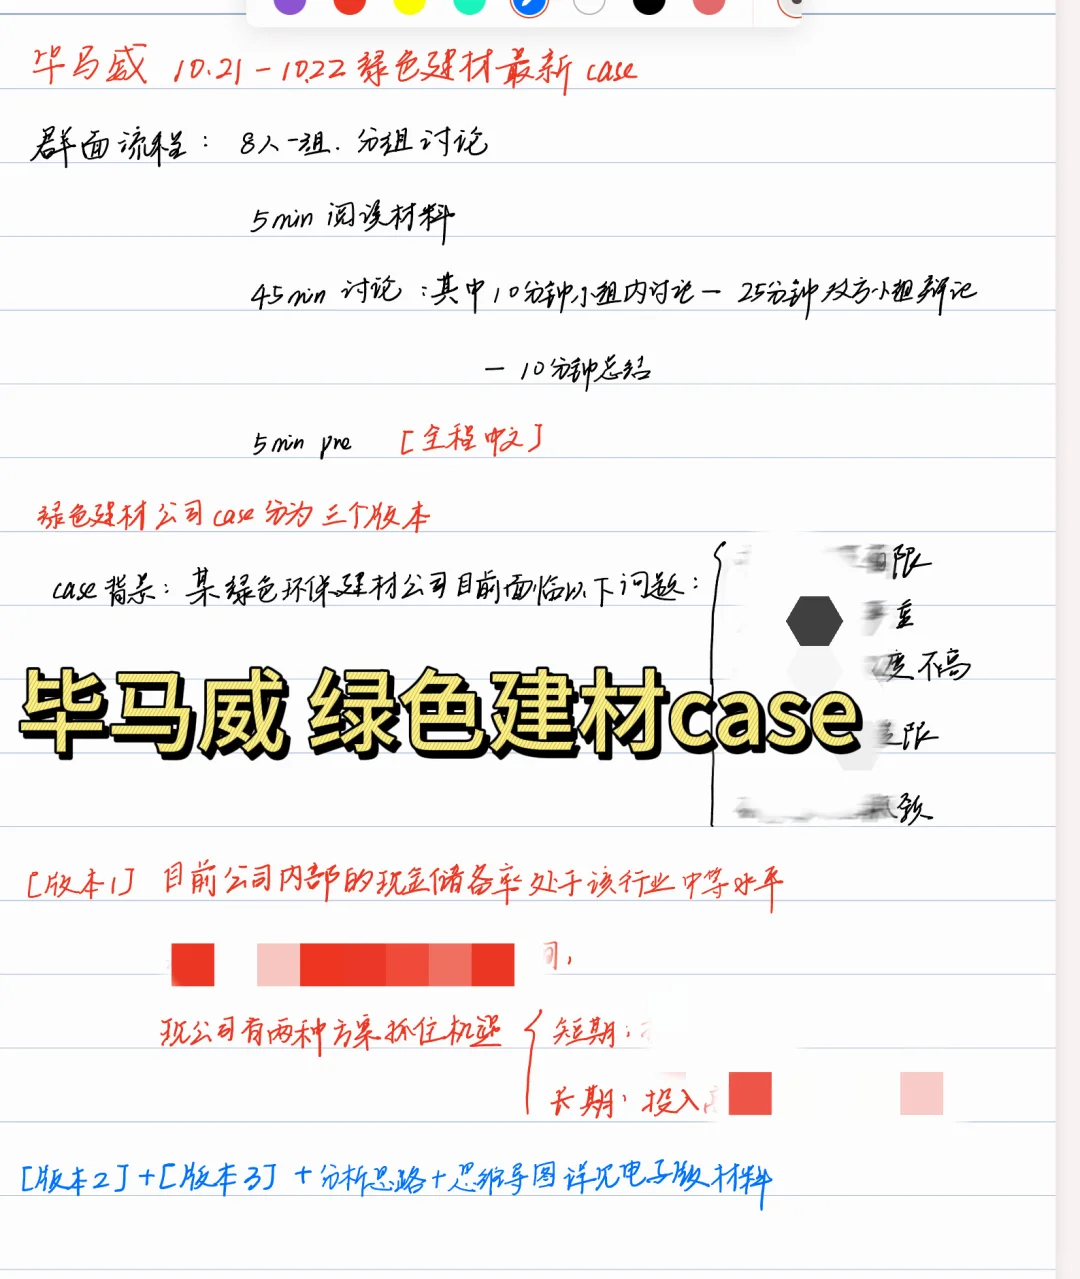 毕马威 10.21-10.22 绿色建材最新 case
群面流程： 8人一组. 分组讨论
5min 阅读材料
45min 讨论：其中10分钟小组内讨论 — 25分钟双方小组辩论
— 10分钟总结
5min pre [全程中文]
绿色建材公司case分为三个版本
case背景：某绿色环保建材公司目前面临以下问题：
限
重
度不高
限
致
毕马威 绿色建材case
[版本1] 目前公司内部的现金储备率处于该行业中等水平
间，
现公司有两种方案抓住机遇
短期：
长期：投入
[版本2]+[版本3] +分析思路+思维导图详见电子版材料